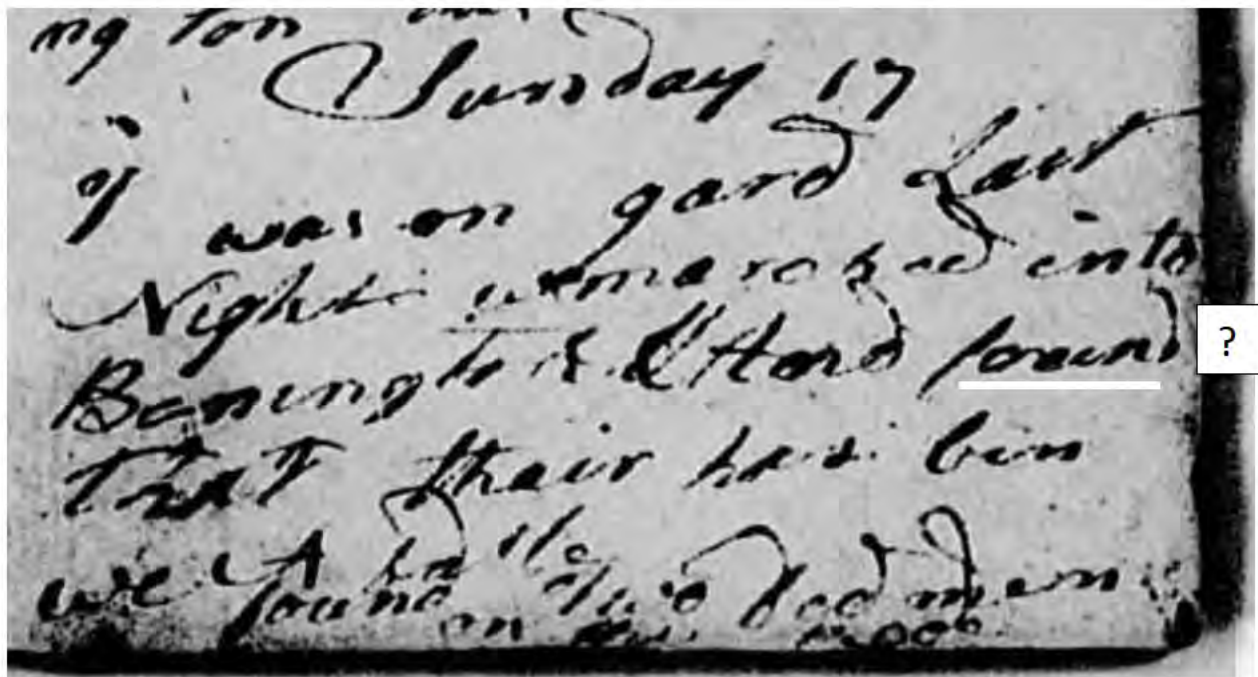 ng ton
Sunday 17
y was on gard Last
Night we marched into
Benington & found
that their has bin
A battle
we found two ded men